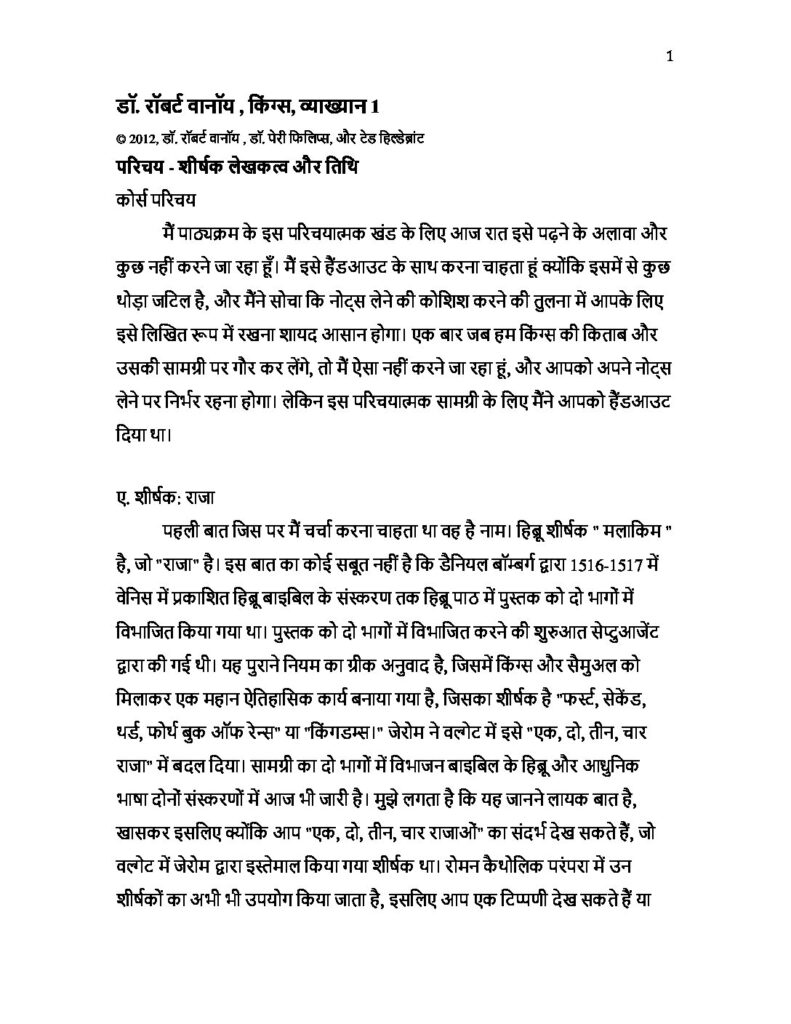 1
डॉ. रॉबर्ट वानॉय , किंग्स, व्याख्यान 1
© 2012, डॉ. रॉबर्ट वानॉय , डॉ. पेरी फिलिप्स, और टेड हिल्डेब्रांट
परिचय - शीर्षक लेखकत्व और तिथि
कोर्स परिचय
मैं पाठ्यक्रम के इस परिचयात्मक खंड के लिए आज रात इसे पढ़ने के अलावा और
कुछ नहीं करने जा रहा हूँ। मैं इसे हैंडआउट के साथ करना चाहता हूं क्योंकि इसमें से कुछ
थोड़ा जटिल है, और मैंने सोचा कि नोट्स लेने की कोशिश करने की तुलना में आपके लिए
इसे लिखित रूप में रखना शायद आसान होगा। एक बार जब हम किंग्स की किताब और
उसकी सामग्री पर गौर कर लेंगे, तो मैं ऐसा नहीं करने जा रहा हूं, और आपको अपने नोट्स
लेने पर निर्भर रहना होगा। लेकिन इस परिचयात्मक सामग्री के लिए मैंने आपको हैंडआउट
दिया था।
ए. शीर्षक: राजा
पहली बात जिस पर मैं चर्चा करना चाहता था वह है नाम। हिब्रू शीर्षक " मलाकिम "
है, जो "राजा" है। इस बात का कोई सबूत नहीं है कि डैनियल बॉम्बर्ग द्वारा 1516-1517 में
वेनिस में प्रकाशित हिब्रू बाइबिल के संस्करण तक हिब्रू पाठ में पुस्तक को दो भागों में
विभाजित किया गया था। पुस्तक को दो भागों में विभाजित करने की शुरुआत सेप्टुआजेंट
द्वारा की गई थी। यह पुराने नियम का ग्रीक अनुवाद है, जिसमें किंग्स और सैमुअल को
मिलाकर एक महान ऐतिहासिक कार्य बनाया गया है, जिसका शीर्षक है "फर्स्ट, सेकेंड,
थर्ड, फोर्थ बुक ऑफ रेन्स" या "किंगडम्स।" जेरोम ने वल्गेट में इसे "एक, दो, तीन, चार
राजा" में बदल दिया। सामग्री का दो भागों में विभाजन बाइबिल के हिब्रू और आधुनिक
भाषा दोनों संस्करणों में आज भी जारी है। मुझे लगता है कि यह जानने लायक बात है,
खासकर इसलिए क्योंकि आप "एक, दो, तीन, चार राजाओं" का संदर्भ देख सकते हैं, जो
वल्गेट में जेरोम द्वारा इस्तेमाल किया गया शीर्षक था। रोमन कैथोलिक परंपरा में उन
शीर्षकों का अभी भी उपयोग किया जाता है, इसलिए आप एक टिप्पणी देख सकते हैं या